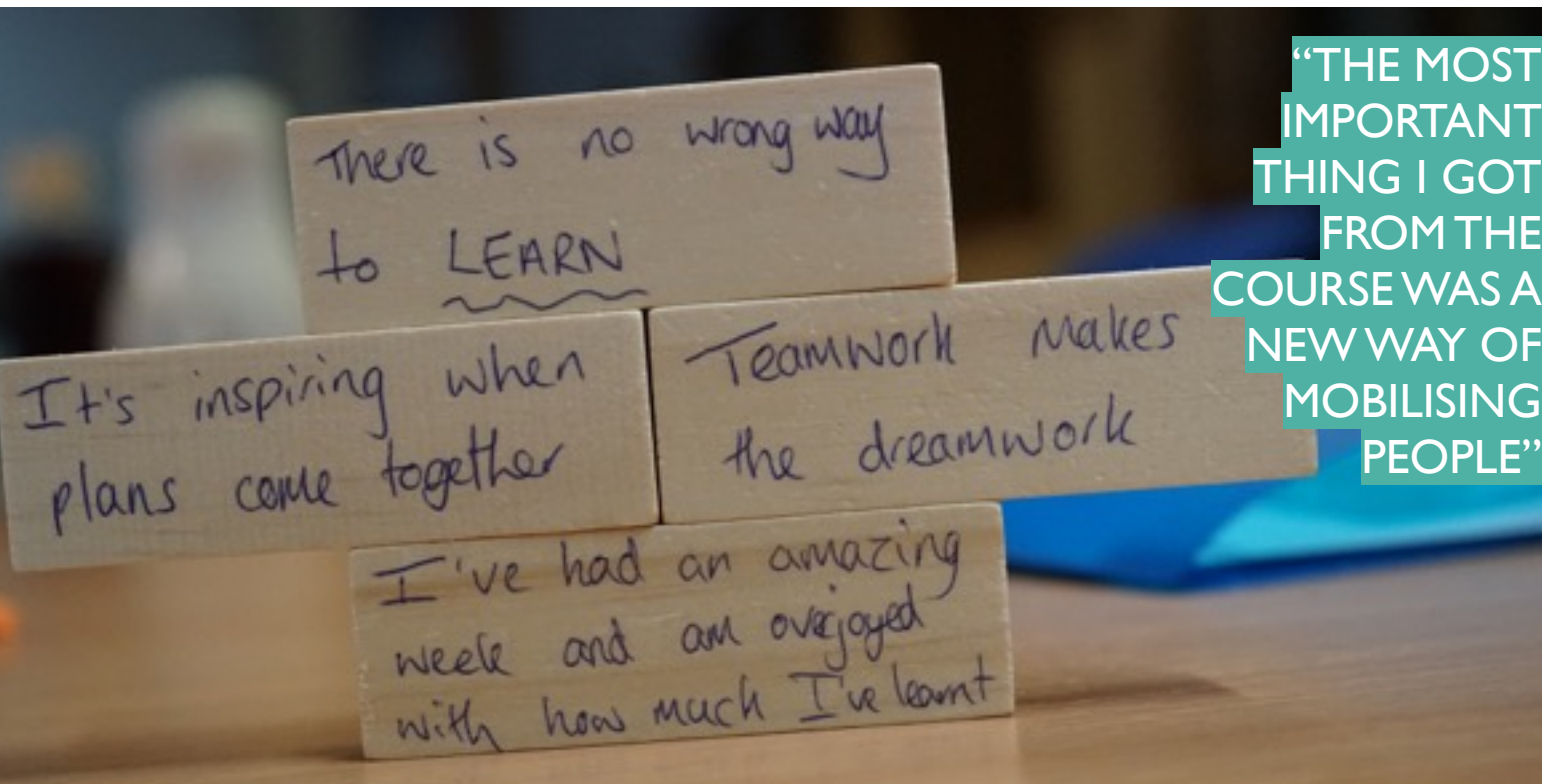 There is no wrong way
to LEARN
It's inspiring when
plans come together
Teamwork makes
the dreamwork
I've had an amazing
week and am overjoyed
with how much I've learnt
“THE MOST
IMPORTANT
THING I GOT
FROM THE
COURSE WAS A
NEW WAY OF
MOBILISING
PEOPLE”